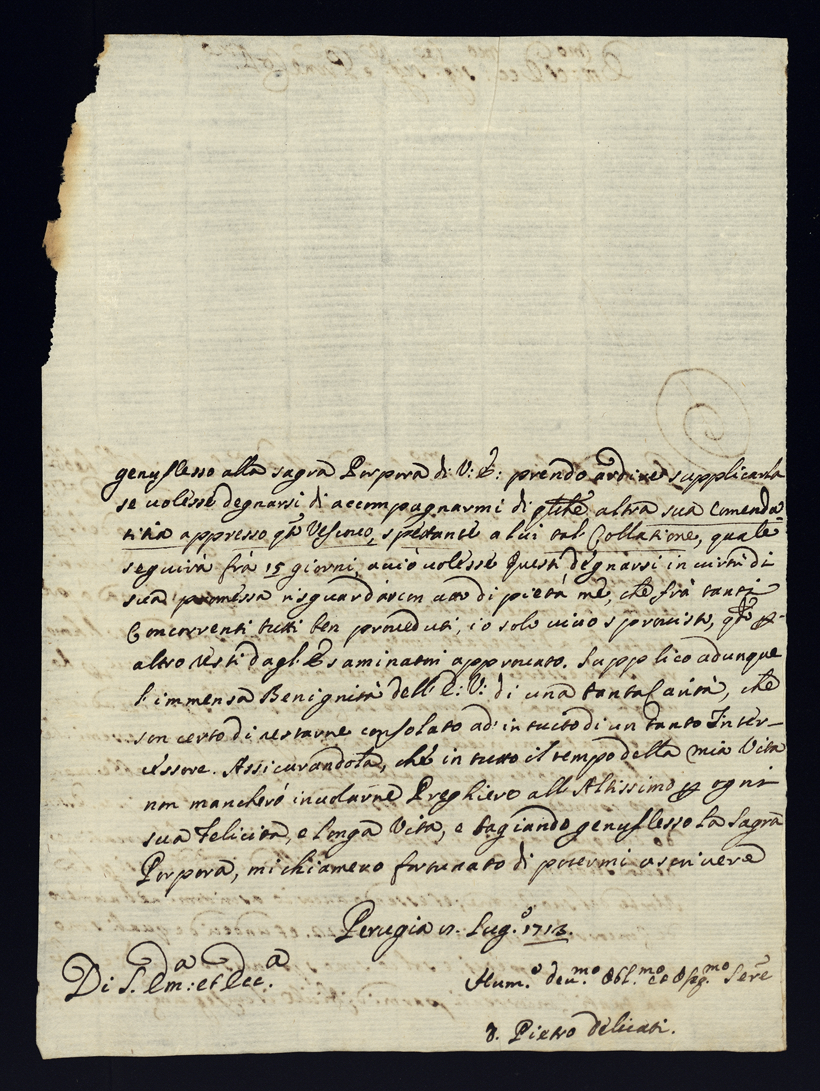 genuflesso alla sagra Porpora di V: E: prendo ardire supplicarla
se volesse degnarsi di accompagnarmi di altra sua Comenda=
titia appresso Vescovo, spettante a lui tal Collatione, quale
seguirà frà 15 giorni, acciò volesse questi degnarsi in virtù di
sua promessa risguardar con di pietà me, che frà tanti
Concorrenti tutti ben proveduti, io solo vivo sprovisto,
altro resti dagl' Esaminatori approvato. Supplico adunque
l'immensa Benignità dell' E: V: di una tanta Carità, che
son certo di restarne consolato ad' intuito di un tanto Inter-
cessore. Assicurandola, che in tutto il tempo della mia Vita
non mancherò inviolarne Preghiere all' Altissimo ogni
sua Felicità, e longa Vita, e bagiando genuflesso la Sagra
Porpora, mi chiamerò fortunato di potermi ascrivere
Perugia Lug.º 1713.
Di V. Em:ª et Ecc.ª
Hum.º dev.mo Obl.mo et Osseq.mo Ser.e
Pietro Delicati.